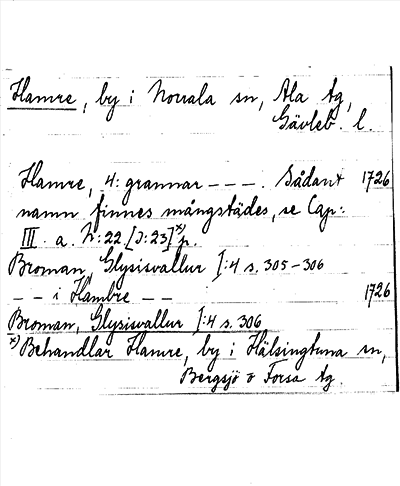 Hamre, by i Norrala sn, Ala tg,
Gävleb. l.
Hamre, 4: grannar - - - . Sådant 1726
namn finnes mångstädes, se Cap:
III. a. N:22 [ɔ:23] x) p.
Broman, Glysisvallur I:4 s. 305-306
- - i Hambre - - 1726
Broman, Glysisvallur I:4 s. 306
x) Behandlar Hamre, by i Hälsingtuna sn,
Bergsjö o Forsa tg.